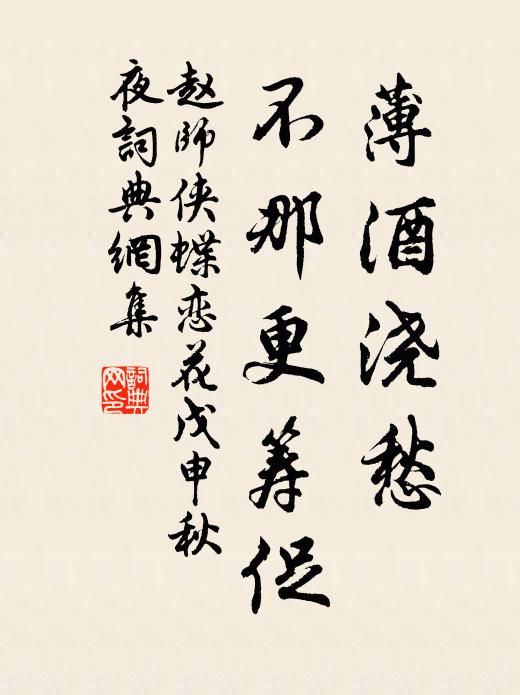 薄酒浇愁
不那更筹促
赵师侠蝶恋花戊申秋
夜詞典網集
詞典
网印